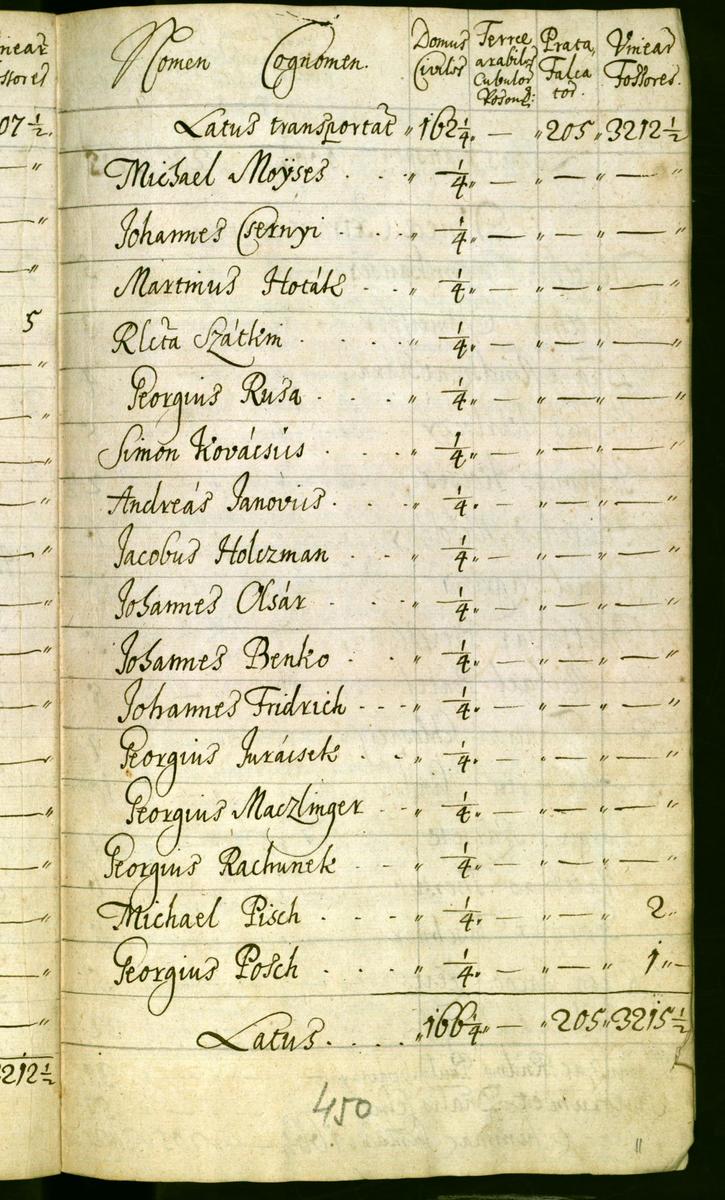 Nomen Cognomen. Domus Civiles Terræ arabiles Cubulor Poson: Prata Falcator. Vinear Fossores.
Latus transportat " 162 1/4 " — " 205 " 3212 1/2
Michael Moÿses . . " 1/4 " — " — " — "
Johannes Csernyi . . " 1/4 " — " — " — "
Martinus Hoták . . " 1/4 " — " — " — "
Rlcta Szátkm . . . . " 1/4 " — " — " — "
Georgius Rusa . . . " 1/4 " — " — " — "
Simon Kovácsüs . . . " 1/4 " — " — " — "
Andreás Janovius . . . " 1/4 " — " — " — "
Jacobus Holczman . . " 1/4 " — " — " — "
Johannes Olsár . . . " 1/4 " — " — " — "
Johannes Benko . . . " 1/4 " — " — " — "
Johannes Fridrich . . . " 1/4 " — " — " — "
Georgius Jurácsek . . . " 1/4 " — " — " — "
Georgius Maczlinger . . " 1/4 " — " — " — "
Georgius Rachunek . . . " 1/4 " — " — " — "
Michael Pisch . . . . " 1/4 " — " — " 2 "
Georgius Posch . . . . " 1/4 " — " — " 1 "
Latus . . . . " 166 1/4 " — " 205 " 3215 1/2
450